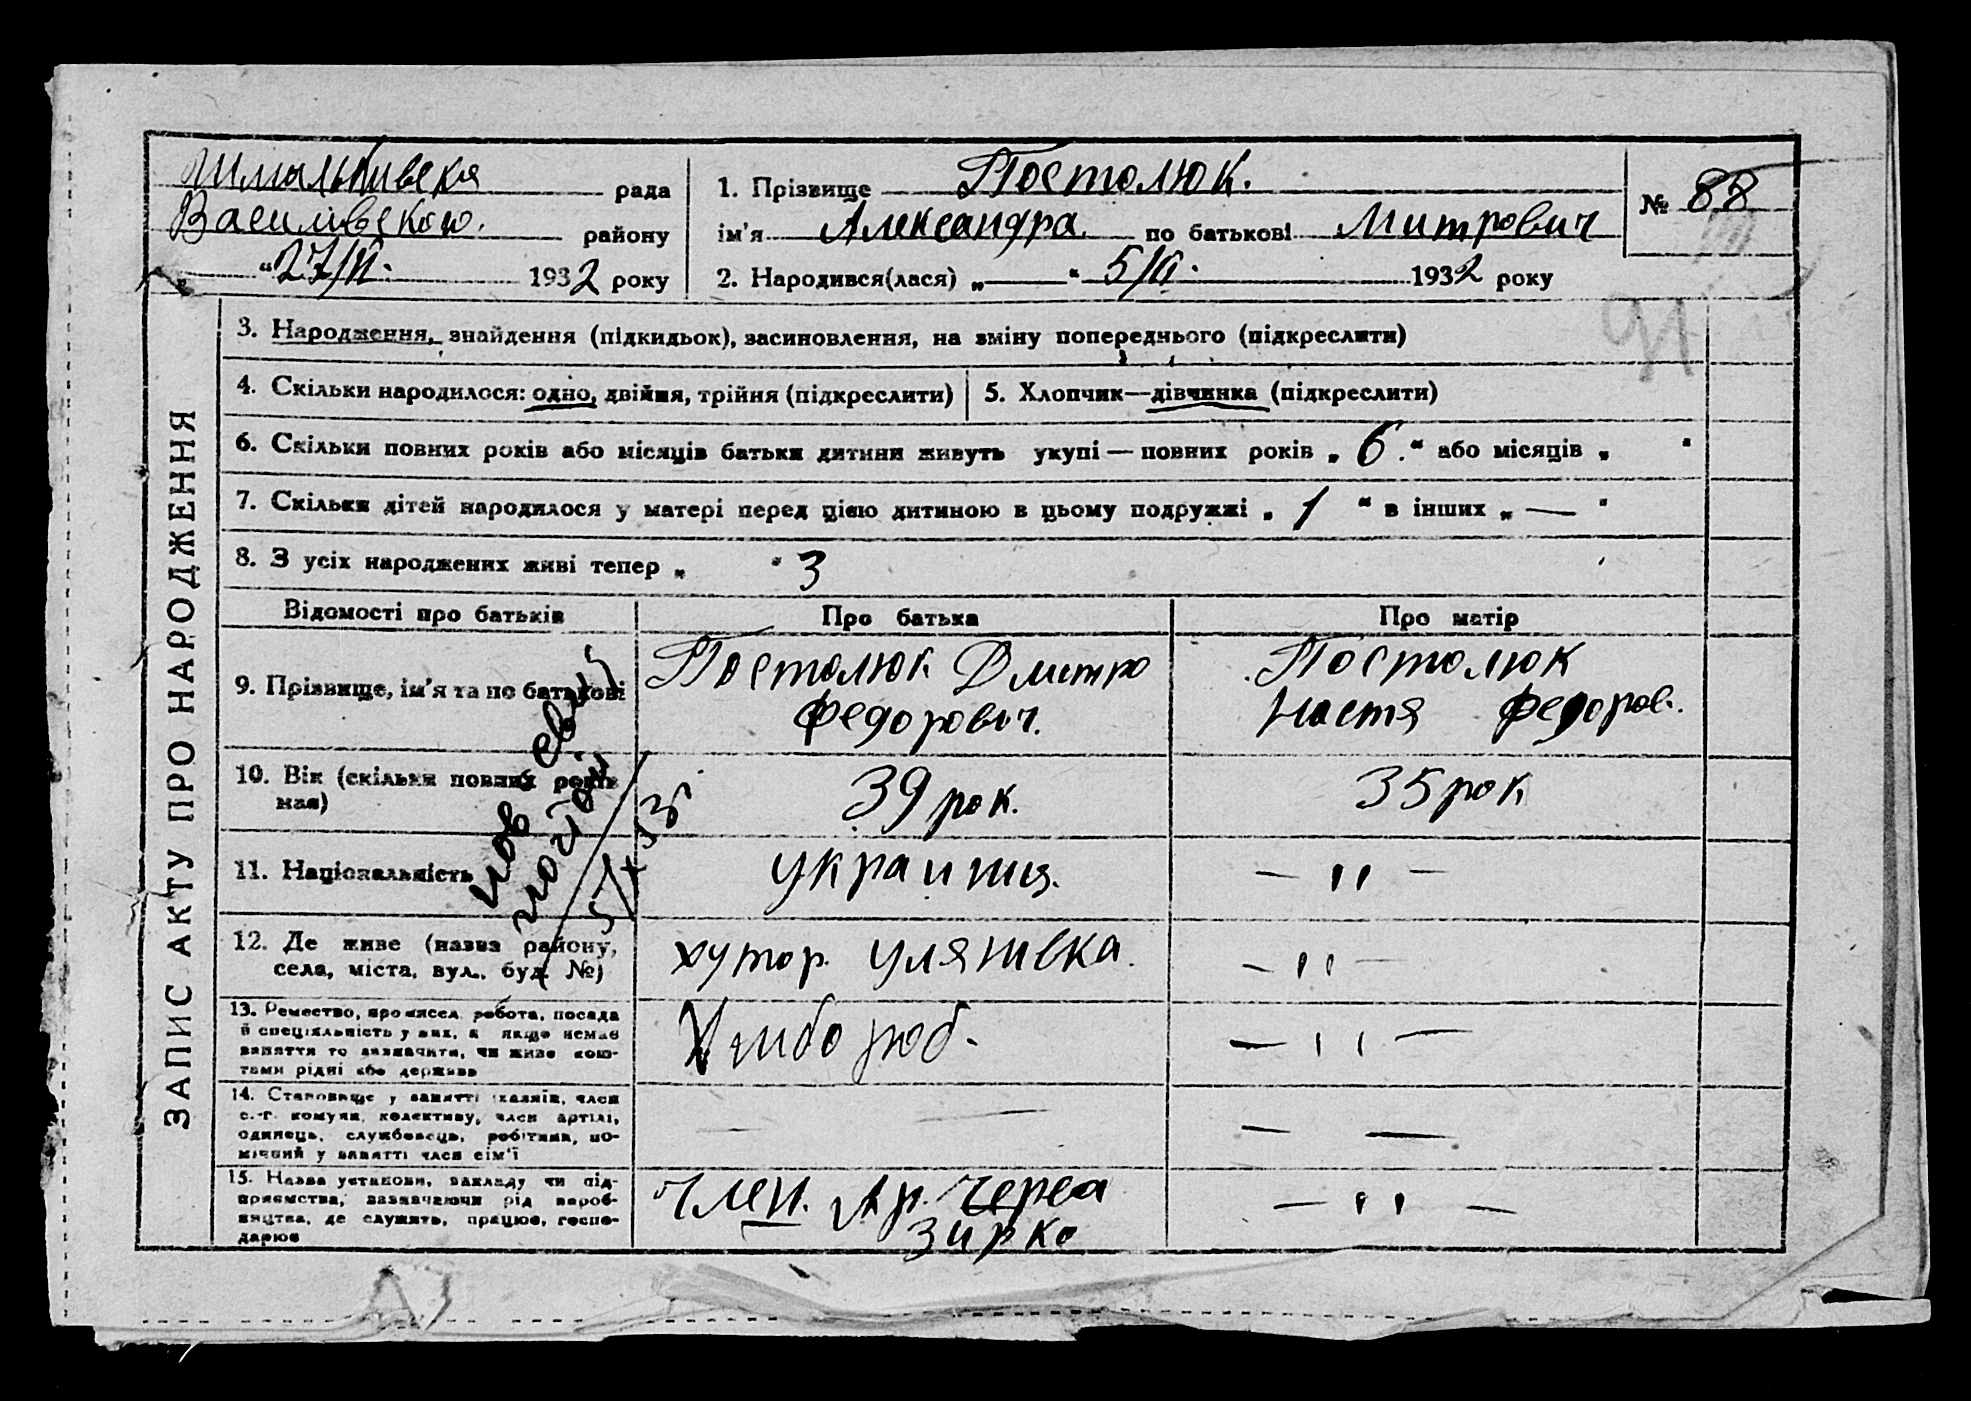 Шмальківська рада
Василівського району
„ “ 27/VI. 1932 року
1. Прізвище Постолюк.
ім'я Александра по батькові Митрович
2. Народився(лася) „ “ 5/VI. 1932 року
№ 88
91
ЗАПИС АКТУ ПРО НАРОДЖЕННЯ
3. Народження, знайдення (підкидьок), засиновлення, на зміну попереднього (підкреслити)
4. Скільки народилося: одно, двійня, трійня (підкреслити)
5. Хлопчик—дівчинка (підкреслити)
6. Скільки повних років або місяців батьки дитини живуть укупі — повних років „ 6. “ або місяців „ “
7. Скільки дітей народилося у матері перед цією дитиною в цьому подружжі „ 1 “ в інших „ — “
8. З усіх народжених живі тепер „ “ 3
Відомості про батьків Про батька Про матір
9. Прізвище, ім'я та по батькові
Постолюк Дмитро
Федорович.
Постолюк
Настя Федоров.
10. Вік (скільки повних років
має)
39 рок.
35 рок
11. Національність
украинц.
— " —
12. Де живе (назва району,
села, міста, вул., буд. №)
хутор. Улянивка.
— " —
13. Ремество, промисел, робота, посада
й спеціяльність у них, а якщо немає
заняття то зазначити, чи живе кош-
тами рідні або держави
Хлибороб.
— " —
14. Становище у занятті (хазяїн, член
с.-г. комуни, колективу, член артілі,
одинець, службовець, робітник, по-
мічний у занятті член сім'ї
— —
— —
15. Назва установи, закладу чи під-
приємства, зазначаючи рід вироб-
ництва, де служить, працює, госпо-
дарює
член. Ар. Черва
зирка
— " —